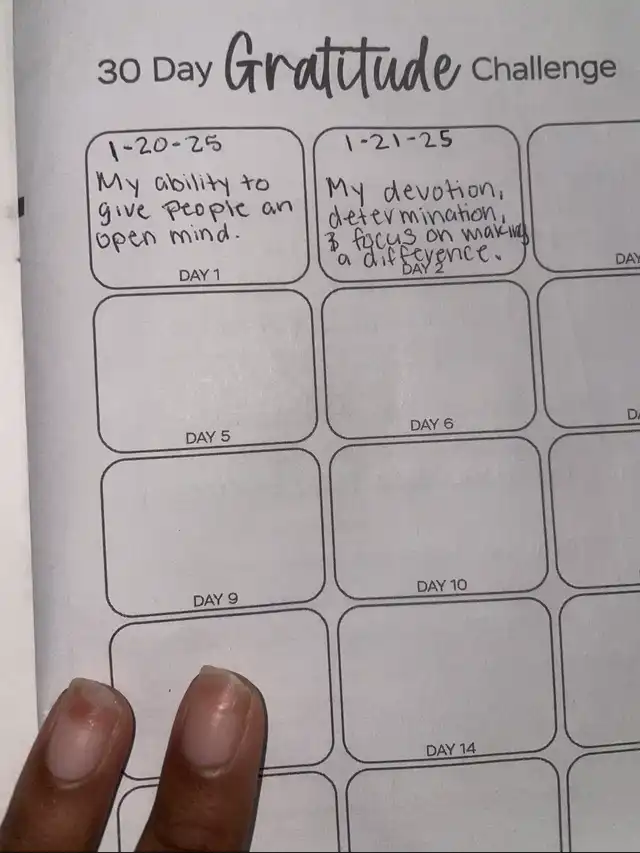 30 Day Gratitude Challenge
1-20-25
My ability to
give people an
open mind.
DAY 1
1-21-25
My devotion,
determination,
& focus on making
a difference.
DAY 2
DAY
DAY 5
DAY 6
DAY 9
DAY 10
DAY 14